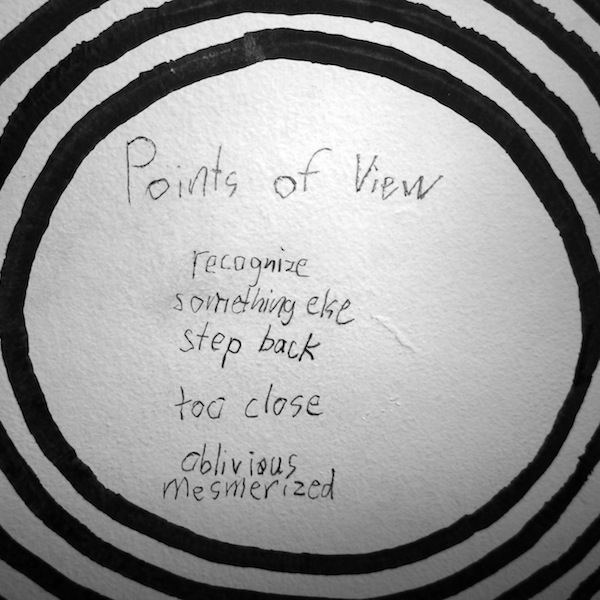 Points of View
recognize
something else
step back
too close
oblivious
mesmerized